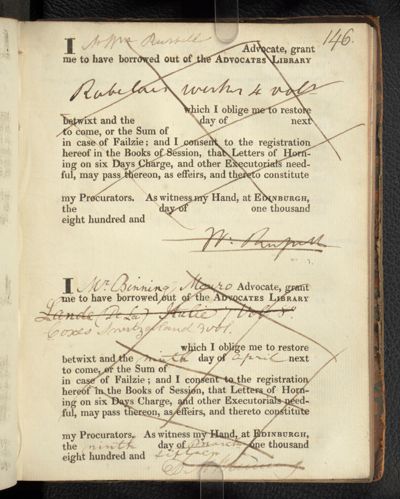 146.
I Mr Wm Russell Advocate, grant
me to have borrowed out of the ADVOCATES LIBRARY
Rabelais works 4 vols
which I oblige me to restore
betwixt and the day of next
to come, or the Sum of
in case of Failzie; and I consent to the registration
hereof in the Books of Session, that Letters of Horn-
ing on six Days Charge, and other Executorials need-
ful, may pass thereon, as effeirs, and thereto constitute
my Procurators. As witness my Hand, at EDINBURGH,
the day of one thousand
eight hundred and
Wm. Russell
I Mr. Binning Monro Advocate, grant
me to have borrowed out of the ADVOCATES LIBRARY
Lande (De La) Italie
Coxes Switzerland 2 vol.
which I oblige me to restore
betwixt and the ninth day of April next
to come, or the Sum of
in case of Failzie; and I consent to the registration
hereof in the Books of Session, that Letters of Horn-
ing on six Days Charge, and other Executorials need-
ful, may pass thereon, as effeirs, and thereto constitute
my Procurators. As witness my Hand, at EDINBURGH,
the ninth day of March one thousand
eight hundred and sixteen